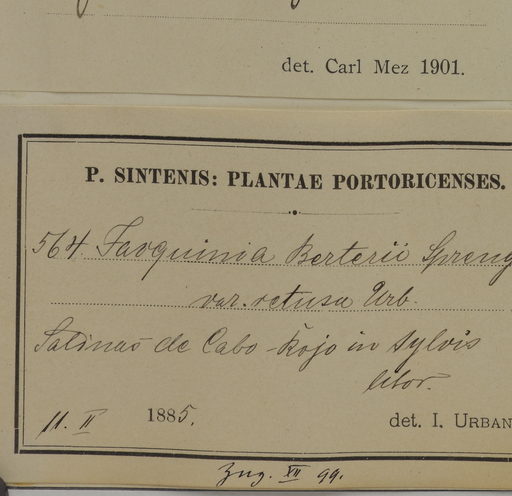 det. Carl Mez 1901.
P. SINTENIS: PLANTAE PORTORICENSES.
564. Jacquinia Berterii Spreng
var. retusa Urb.
Salinas de Cabo-Rojo in sylvis
litor.
11. II 1885. det. I. URBAN
Zug. XII 99.